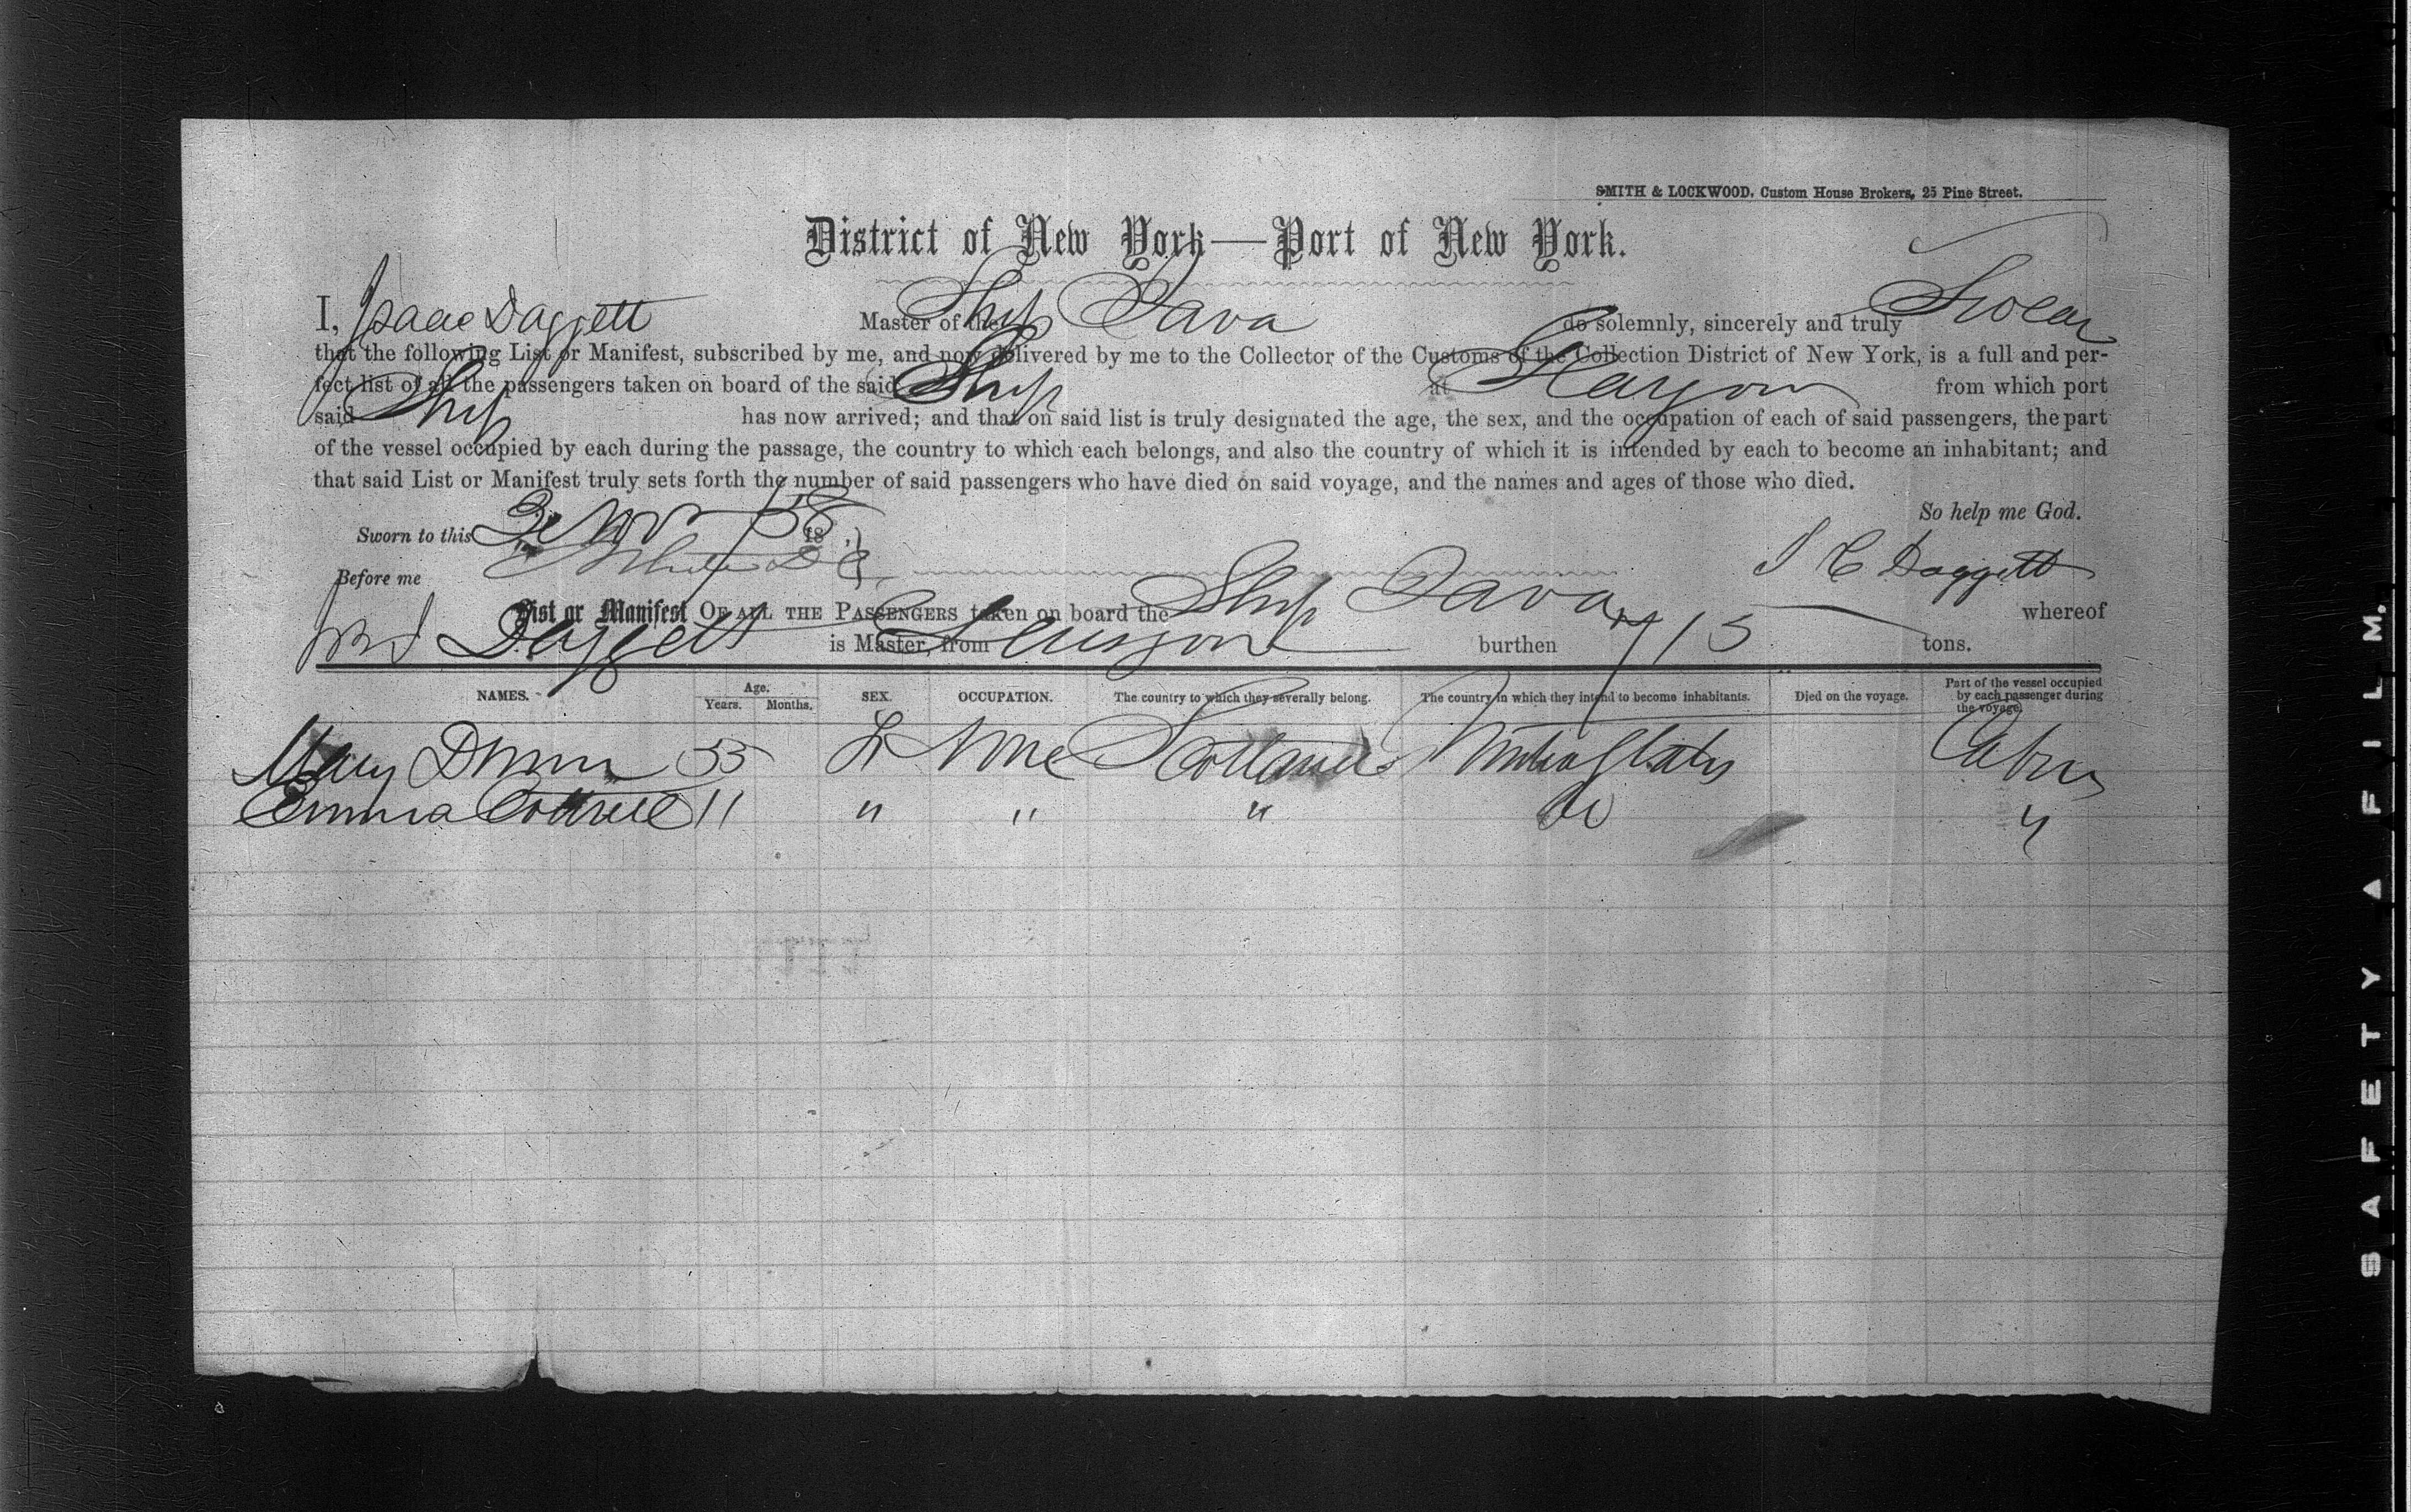 SMITH & LOCKWOOD, Custom House Brokers, 25 Pine Street.
District of New York—Port of New York.
I, Isaac Daggett Master of the Ship Java do solemnly, sincerely and truly Swear
that the following List or Manifest, subscribed by me, and now delivered by me to the Collector of the Customs of the Collection District of New York, is a full and per-
fect list of all the passengers taken on board of the said Ship at Glasgow from which port
said Ship has now arrived; and that on said list is truly designated the age, the sex, and the occupation of each of said passengers, the part
of the vessel occupied by each during the passage, the country to which each belongs, and also the country of which it is intended by each to become an inhabitant; and
that said List or Manifest truly sets forth the number of said passengers who have died on said voyage, and the names and ages of those who died.
So help me God.
Sworn to this 3 Nov 1858
Before me
I C Daggett
List or Manifest OF ALL THE PASSENGERS taken on board the Ship Java whereof
Daggett is Master, from Glasgow burthen 715 tons.
NAMES. Age. Years. Months. SEX. OCCUPATION. The country to which they severally belong. The country in which they intend to become inhabitants. Died on the voyage. Part of the vessel occupied by each passenger during the voyage.
Mary Dunn 55 F None Scotland United States Cabin
Emma Cottrell 11 " " " Do "
SAFETY FILM.